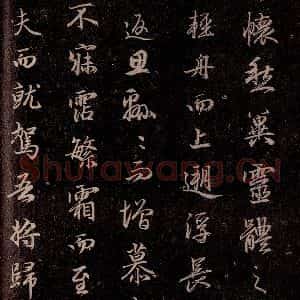 懷愁冀靈體之
輕舟而上遡浮長
返思緜〻而增慕
不寐霑繁霜而至
夫而就駕吾將歸
Shufawang.CN